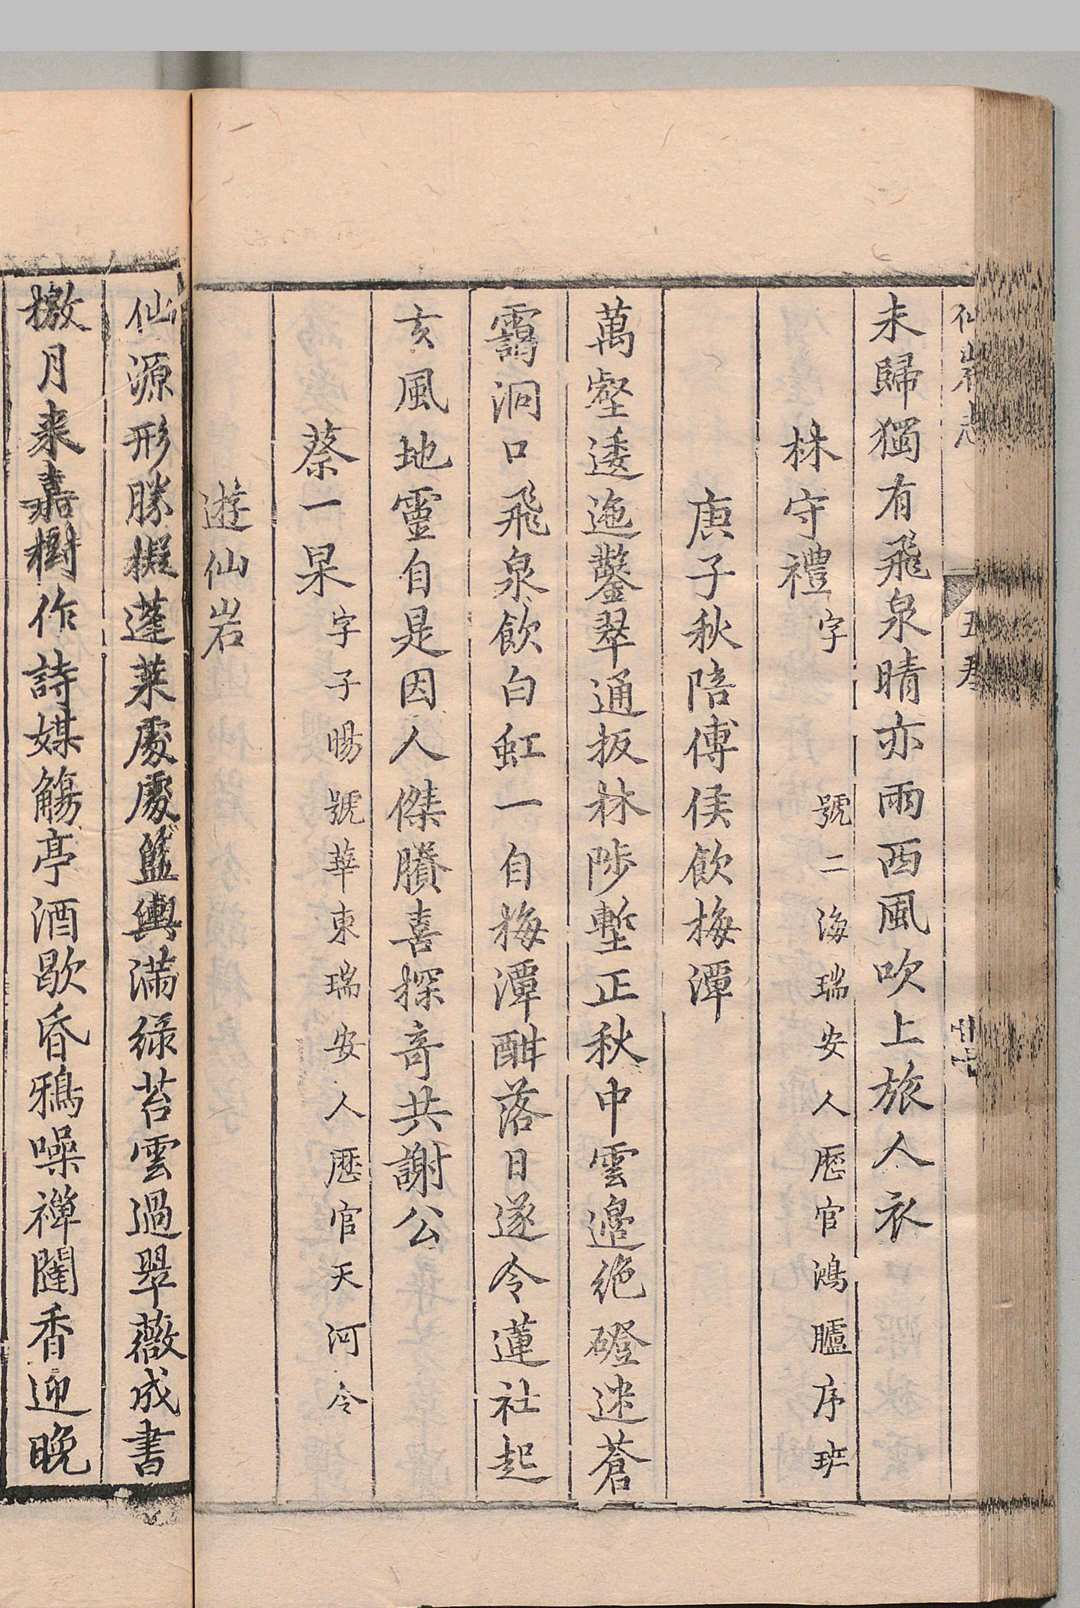 仙岩志 五卷 廿七
未歸獨有飛泉晴亦雨西風吹上旅人衣
林守禮字 號二海瑞安人歷官鴻臚序班
庚子秋陪傅侯飲梅潭
萬壑逶迤鑿翠通扳林陟塹正秋中雲邊絶磴迷蒼
靄洞口飛泉飲白虹一自梅潭酣落日遂令蓮社起
玄風地靈自是因人傑賸喜探奇共謝公
蔡一杲字子暘號華東瑞安人歷官天河令
遊仙岩
仙源形勝擬蓬萊處處籃輿滿綠苔雲過翠薇成書
檄月来嘉樹作詩媒觴亭酒歇昏鴉噪禅闥香迎晚